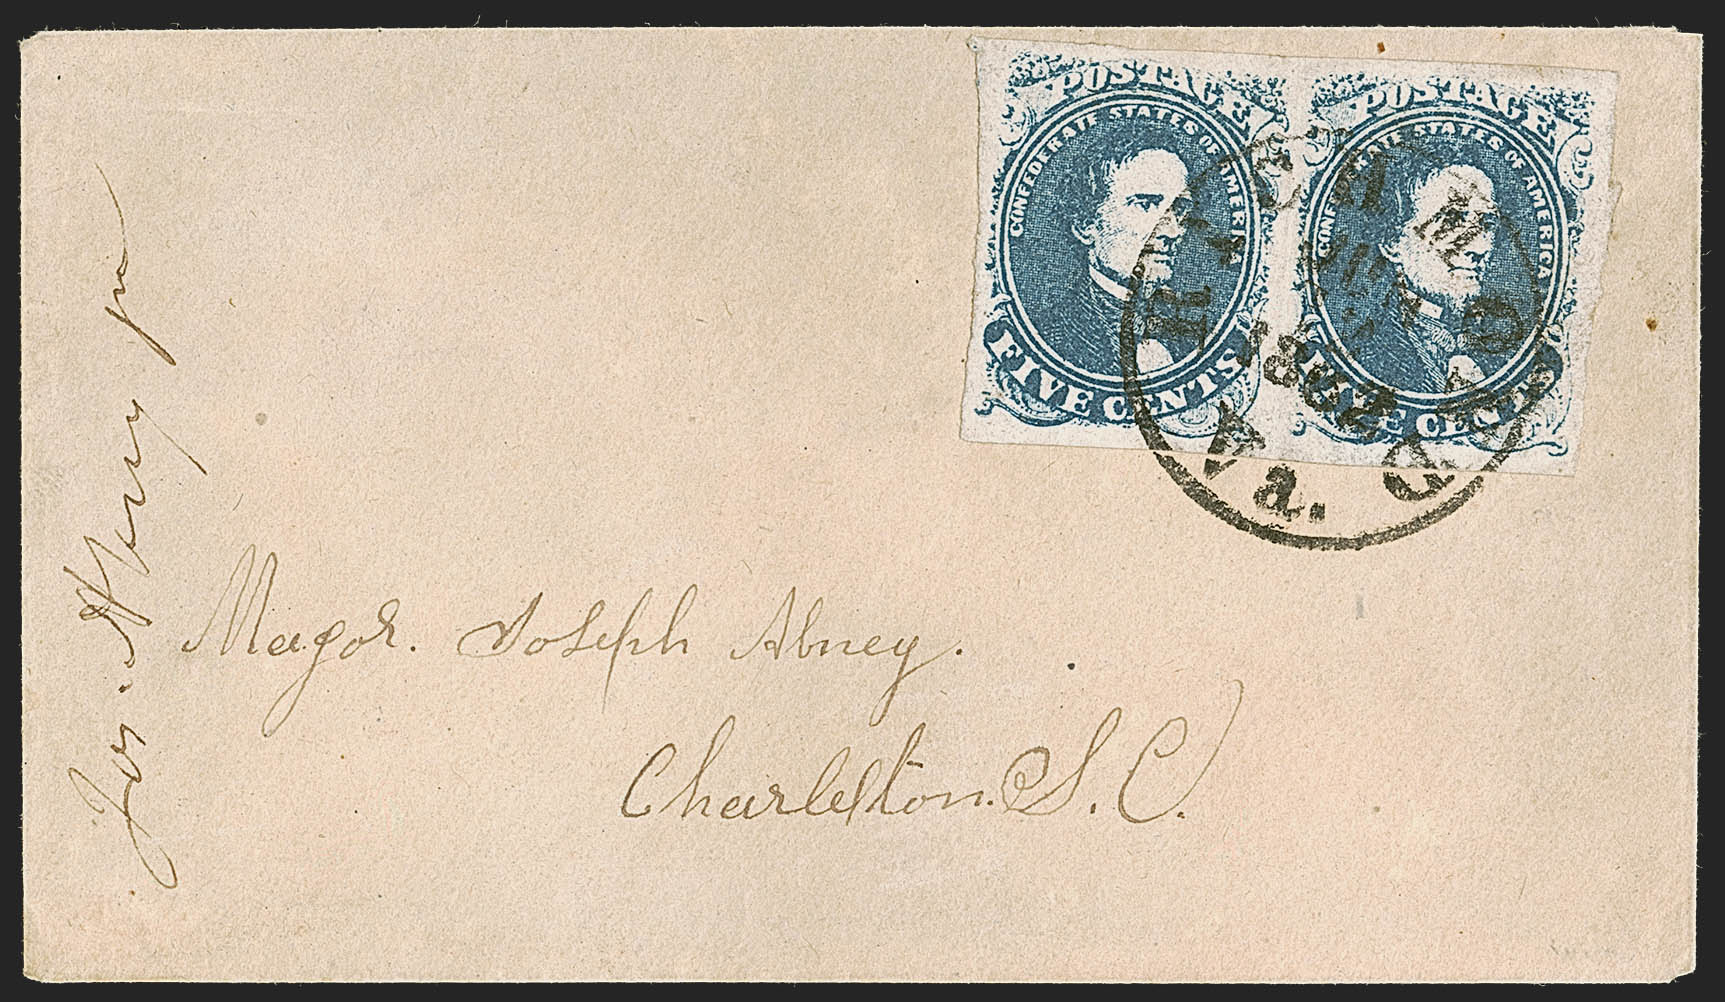 POSTAGE
CONFEDERATE STATES OF AMERICA
FIVE CENTS
POSTAGE
CONFEDERATE STATES OF AMERICA
FIVE CENTS
RICHMOND
1862
Va.
Major. Joseph Abney.
Charleston. S. C.
Jos.